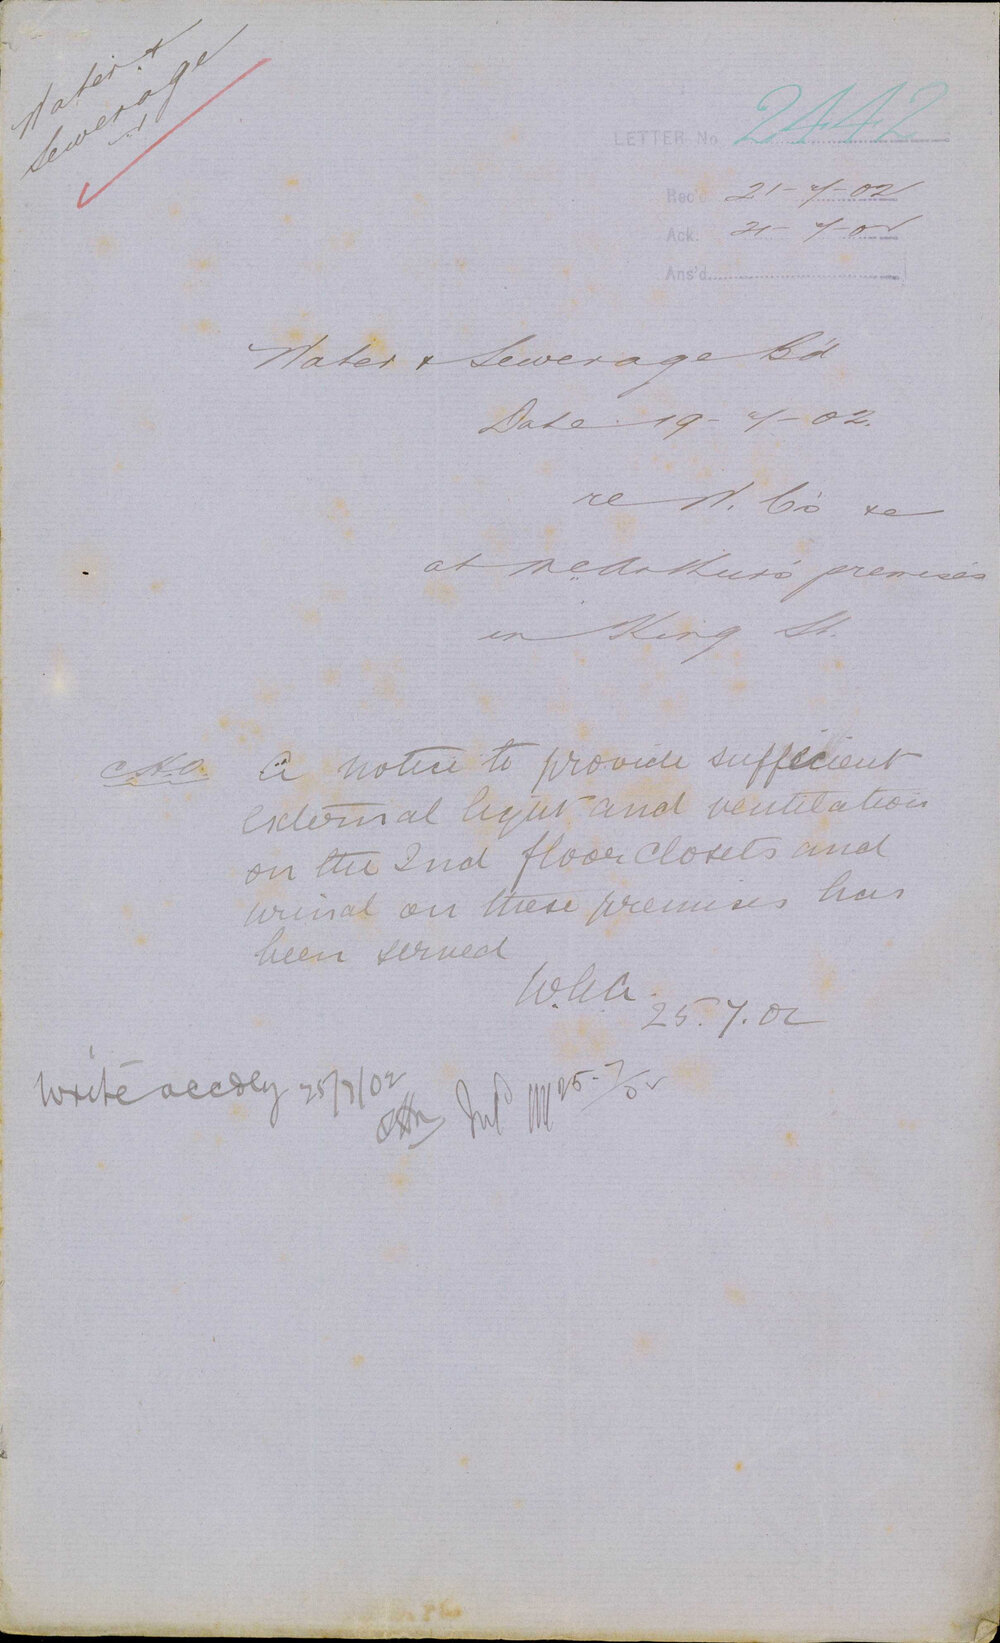 Water &
Sewerage
LETTER No. 2442
Rec'd 21-7-02
Ack. 21-7-02
Ans'd
Water & Sewerage B'd
Date 19-7-02.
re W. C's &c
at McArthur's premises
in King St.
C.H.O. A notice to provide sufficient
external light and ventilation
on the 2nd floor closets and
urinal on these premises has
been served
25.7.02
Write accdly 25/7/02
25-7/02